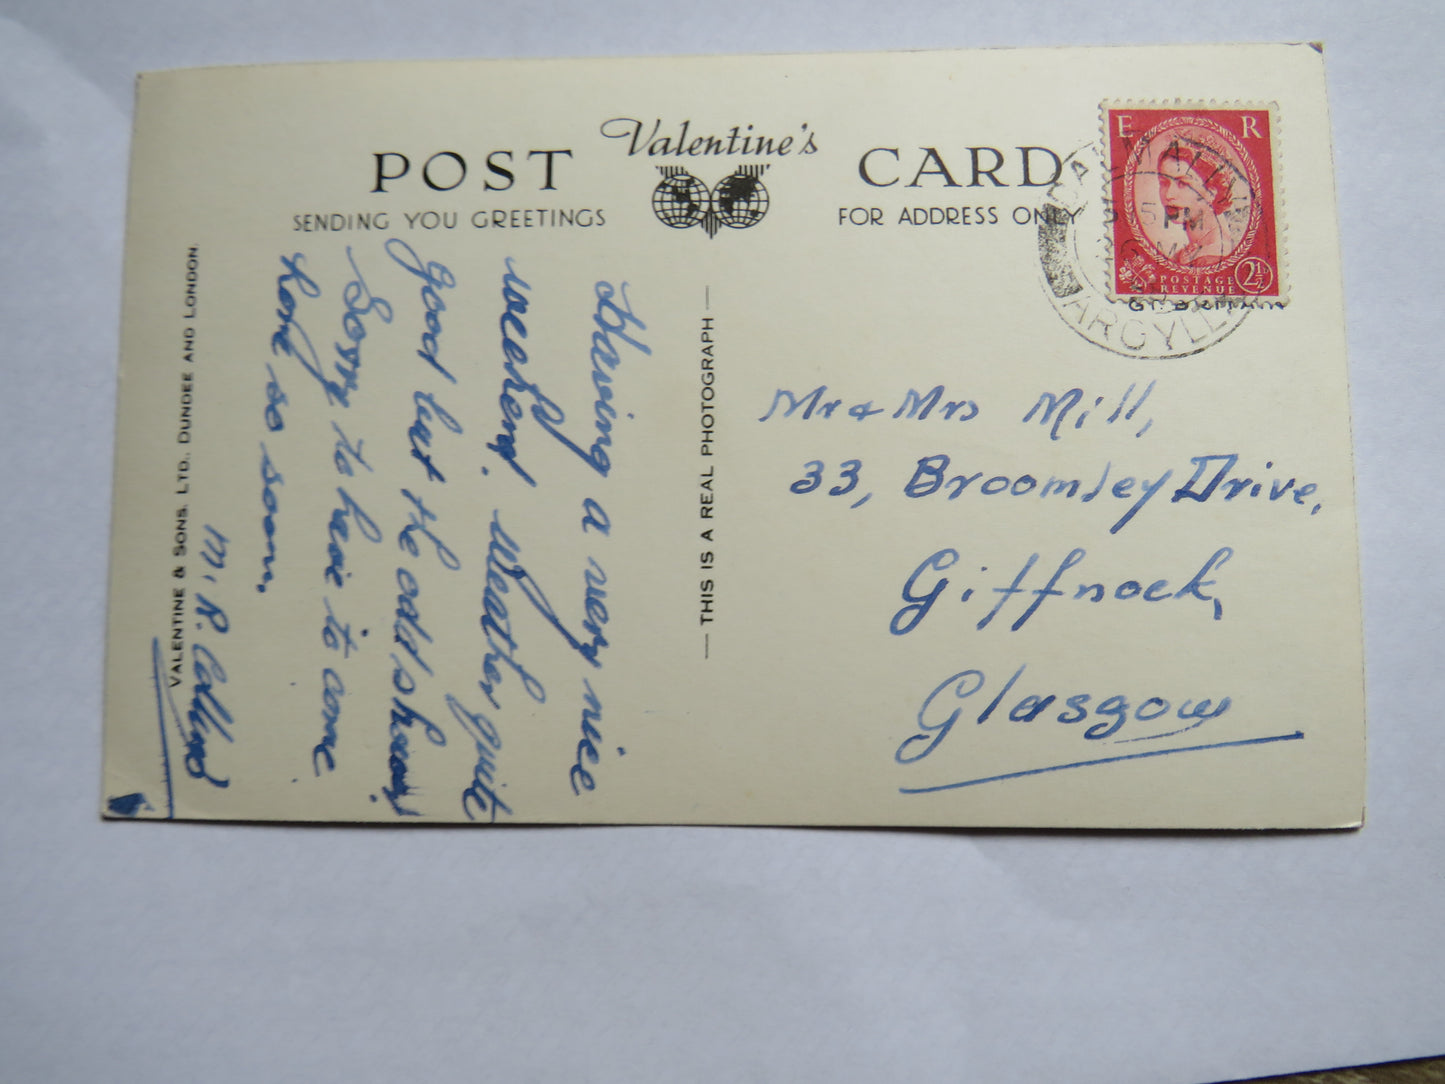 POST Valentine's CARD
SENDING YOU GREETINGS
FOR ADDRESS ONLY
E R
POSTAGE
REVENUE
2½D
5 PM
ARGYLL
GT. BRITAIN
Having a very nice
weekend. Weather quite
good but the odd shower.
Sorry to have to come
home so soon.
M. R.
THIS IS A REAL PHOTOGRAPH
VALENTINE & SONS, LTD., DUNDEE AND LONDON.
Mr & Mrs Mill,
33, Broomley Drive,
Giffnock,
Glasgow